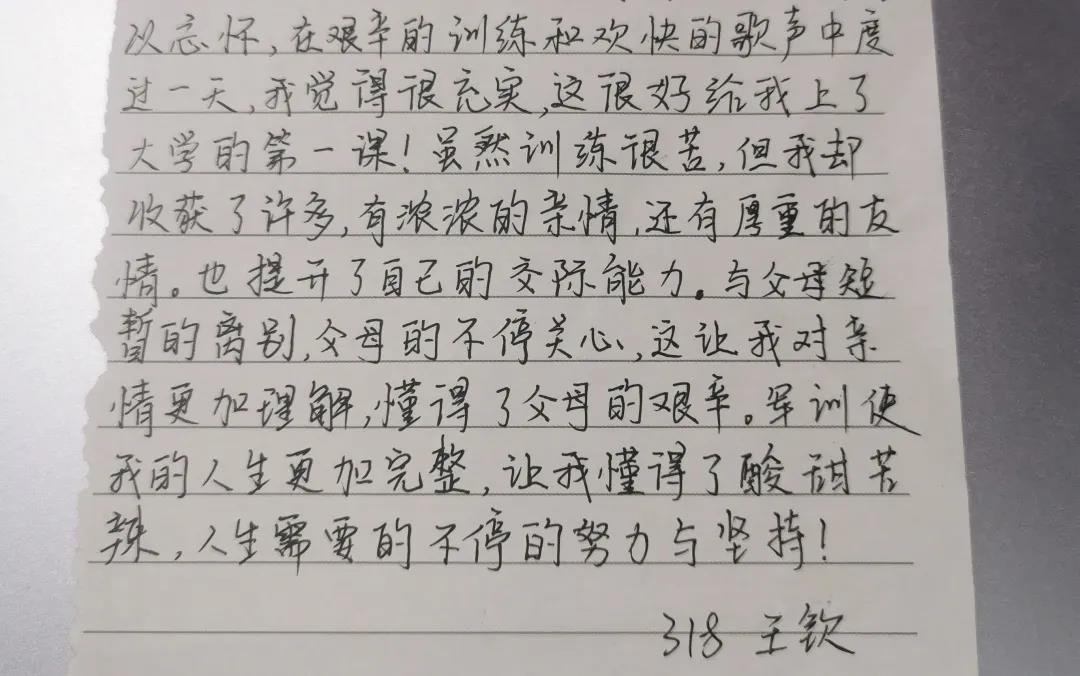 以忘怀,在艰辛的训练和欢快的歌声中度
过一天,我觉得很充实,这很好给我上了
大学的第一课!虽然训练很苦,但我却
收获了许多,有浓浓的亲情,还有厚重的友
情。也提升了自己的交际能力。与父母短
暂的离别,父母的不停关心,这让我对亲
情更加理解,懂得了父母的艰辛。军训使
我的人生更加完整,让我懂得了酸甜苦
辣,人生需要的不停的努力与坚持!
318 王钦